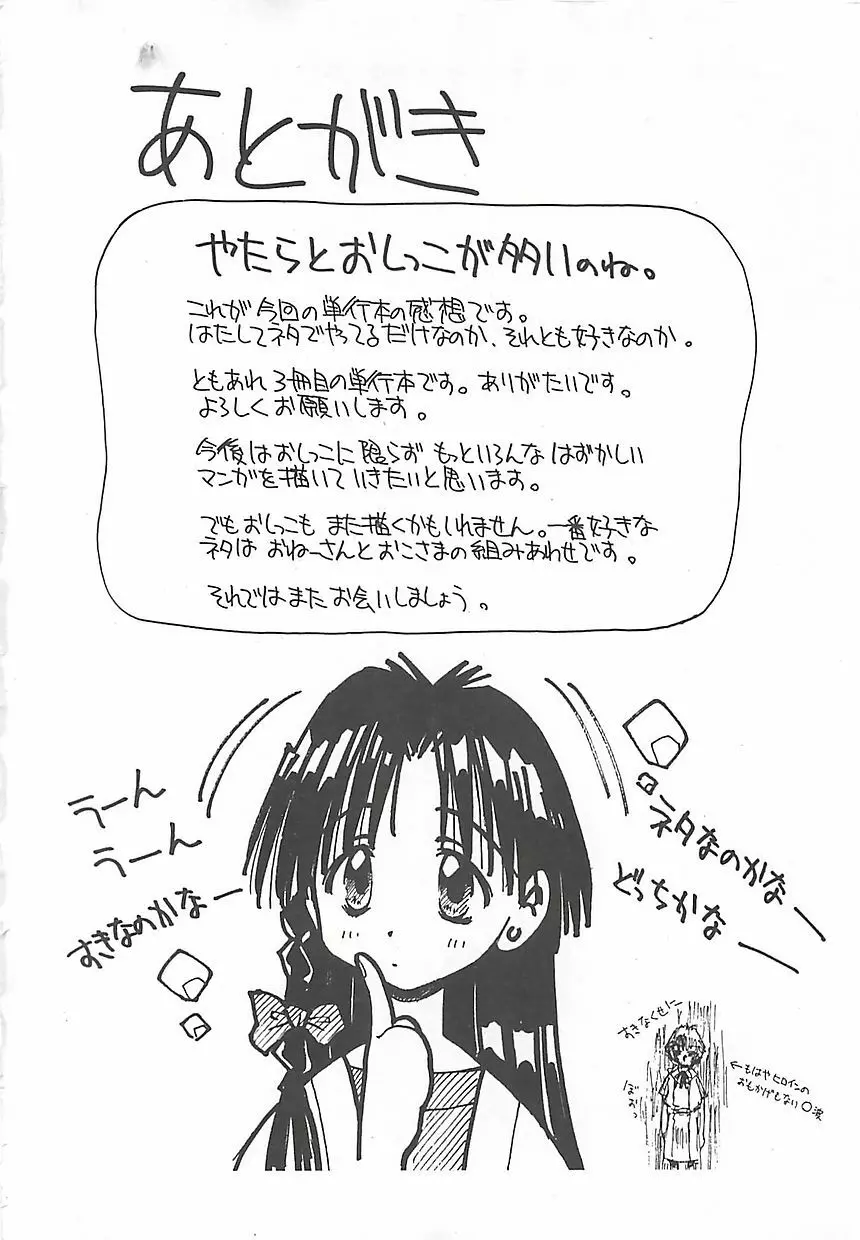 あとがき
やたらとおしっこが多いのね。
これが今回の単行本の感想です。
はたしてネタでやってるだけなのか、それとも好きなのか。
ともあれ3冊目の単行本です。ありがたいです。
よろしくお願いします。
今後はおしっこに限らず もっといろんな はずかしい
マンガを描いて いきたいと思います。
でもおしっこも また描くかもしれません。一番好きな
ネタは おねーさんとおこさまの組みあわせです。
それではまたお会いしましょう。
うーん
うーん
すきなのかなー
ネタなのかなー
どっちかなー
すきなくせにー
ぼおっ
←もはやヒロインの
おもかげもない〇波